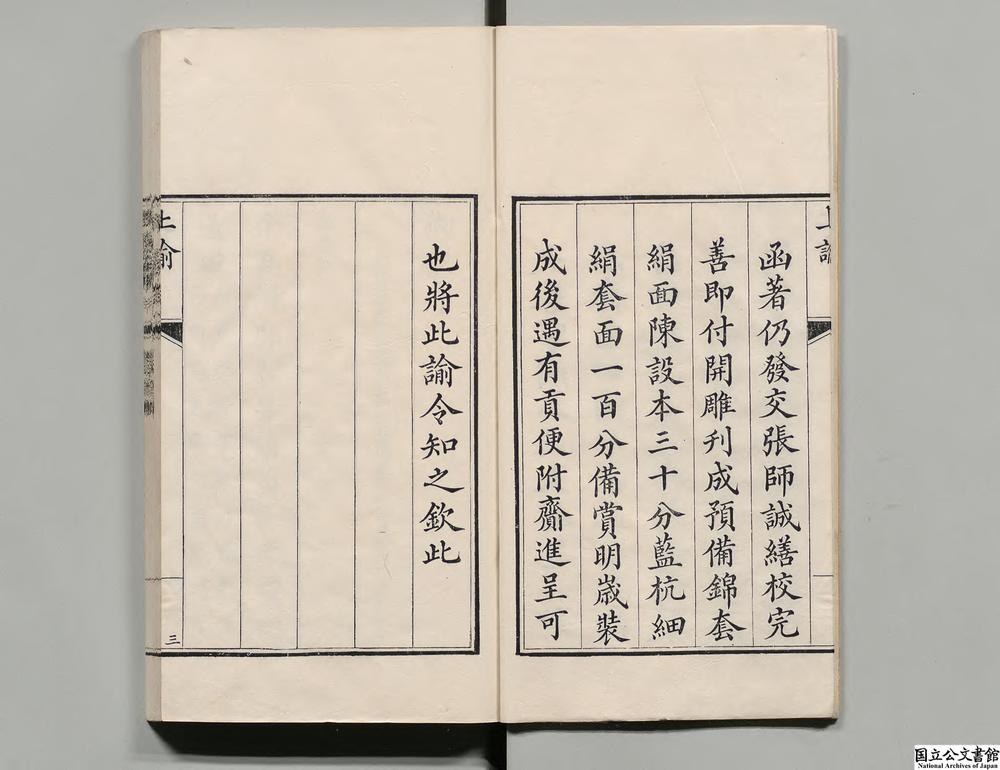 上諭
函著仍發交張師誠繕校完
善即付開雕刋成預備錦套
絹面陳設本三十分藍杭細
絹套面一百分備賞明嵗裝
成後遇有貢便附齎進呈可
也將此諭令知之欽此
上諭
三
国立公文書館
National Archives of Japan